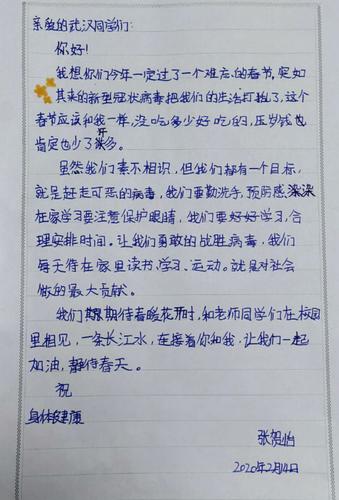 亲爱的武汉同学们:
你好!
我想你们今年一定过了一个难忘的春节,突如
其来的新型冠状病毒把我们的生活打乱了,这个
春节应该和我一样,没吃多少好吃的,压岁钱也
肯定也少了许多。
虽然我们素不相识,但我们都有一个目标,
就是赶走可恶的病毒,我们要勤洗手,预防感染
在家学习要注意保护眼睛,我们要好好学习,合
理安排时间。让我们勇敢的战胜病毒,我们
每天待在家里读书、学习、运动。就是对社会
做的最大贡献。
我们期待春暖花开时,和老师同学们在校园
里相见,一条长江水,连接着你和我,让我们一起
加油,静待春天。
祝
身体健康
张
2020年2月14日